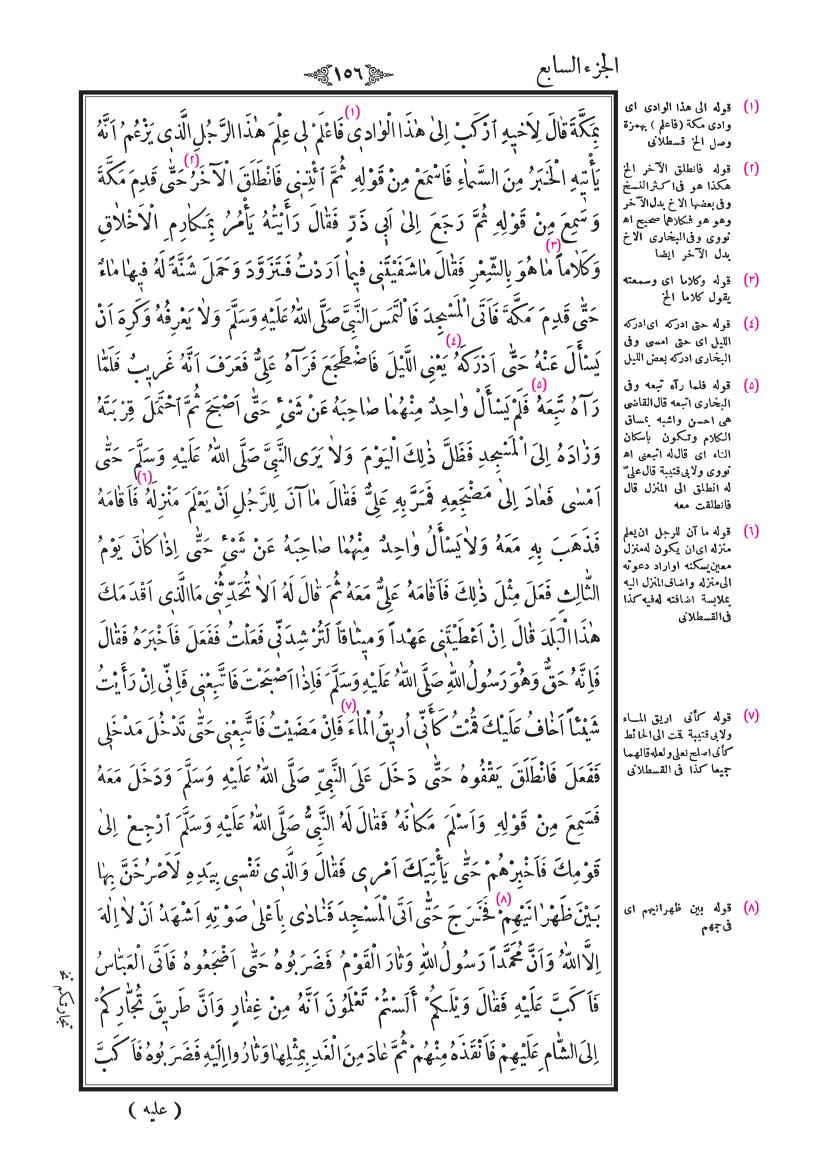 الجزء السابع
١٥٦
بِمَكَّةَ قَالَ لِاَخٖيهِ اَرْكَبْ اِلٰى هٰذَا الْوَادٖى (١) فَاعْلَمْ لٖى عِلْمَ هٰذَا الرَّجُلِ الَّذٖى يَزْعُمُ اَنَّهُ
يَأْتٖيهِ الْخَبَرُ مِنَ السَّمَاءِ فَاسْمَعْ مِنْ قَوْلِهِ ثُمَّ ائْتِنٖى فَانْطَلَقَ الْآخَرُ (٢) حَتّٰى قَدِمَ مَكَّةَ
وَسَمِعَ مِنْ قَوْلِهِ ثُمَّ رَجَعَ اِلٰى اَبٖى ذَرٍّ فَقَالَ رَأَيْتُهُ يَأْمُرُ بِمَكَارِمِ الْاَخْلَاقِ
وَكَلَاماً (٣) مَا هُوَ بِالشِّعْرِ فَقَالَ مَا شَفَيْتَنٖى فٖيمَا اَرَدْتُ فَتَزَوَّدَ وَحَمَلَ شَنَّةً لَهُ فٖيهَا مَاءٌ
حَتّٰى قَدِمَ مَكَّةَ فَاَتَى الْمَسْجِدَ فَالْتَمَسَ النَّبِىَّ صَلَّى اللّٰهُ عَلَيْهِ وَسَلَّمَ وَلَا يَعْرِفُهُ وَكَرِهَ اَنْ
يَسْأَلَ عَنْهُ حَتّٰى اَدْرَكَهُ (٤) يَعْنِى اللَّيْلَ فَاضْطَجَعَ فَرَآهُ عَلِىٌّ فَعَرَفَ اَنَّهُ غَرٖيبٌ فَلَمَّا
رَآهُ تَبِعَهُ (٥) فَلَمْ يَسْأَلْ وَاحِدٌ مِنْهُمَا صَاحِبَهُ عَنْ شَىْءٍ حَتّٰى اَصْبَحَ ثُمَّ احْتَمَلَ قِرْبَتَهُ
وَزَادَهُ اِلَى الْمَسْجِدِ فَظَلَّ ذٰلِكَ الْيَوْمَ وَلَا يَرَى النَّبِىَّ صَلَّى اللّٰهُ عَلَيْهِ وَسَلَّمَ حَتّٰى
اَمْسٰى فَعَادَ اِلٰى مَضْجَعِهِ فَمَرَّ بِهِ عَلِىٌّ فَقَالَ مَا آنَ لِلرَّجُلِ اَنْ يَعْلَمَ مَنْزِلَهُ (٦) فَاَقَامَهُ
فَذَهَبَ بِهِ مَعَهُ وَلَا يَسْأَلُ وَاحِدٌ مِنْهُمَا صَاحِبَهُ عَنْ شَىْءٍ حَتّٰى اِذَا كَانَ يَوْمُ
الثَّالِثِ فَعَلَ مِثْلَ ذٰلِكَ فَاَقَامَهُ عَلِىٌّ مَعَهُ ثُمَّ قَالَ لَهُ اَلَا تُحَدِّثُنٖى مَا الَّذٖى اَقْدَمَكَ
هٰذَا الْبَلَدَ قَالَ اِنْ اَعْطَيْتَنٖى عَهْداً وَمٖيثَاقاً لَتُرْشِدَنّٖى فَعَلْتُ فَفَعَلَ فَاَخْبَرَهُ فَقَالَ
فَاِنَّهُ حَقٌّ وَهُوَ رَسُولُ اللّٰهِ صَلَّى اللّٰهُ عَلَيْهِ وَسَلَّمَ فَاِذَا اَصْبَحْتَ فَاتَّبِعْنٖى فَاِنّٖى اِنْ رَأَيْتُ
شَيْئاً اَخَافُ عَلَيْكَ قُمْتُ كَاَنّٖى اُرٖيقُ الْمَاءَ (٧) فَاِنْ مَضَيْتُ فَاتَّبِعْنٖى حَتّٰى تَدْخُلَ مَدْخَلٖى
فَفَعَلَ فَانْطَلَقَ يَقْفُوهُ حَتّٰى دَخَلَ عَلَى النَّبِىِّ صَلَّى اللّٰهُ عَلَيْهِ وَسَلَّمَ وَدَخَلَ مَعَهُ
فَسَمِعَ مِنْ قَوْلِهِ وَاَسْلَمَ مَكَانَهُ فَقَالَ لَهُ النَّبِىُّ صَلَّى اللّٰهُ عَلَيْهِ وَسَلَّمَ اَرْجِعْ اِلٰى
قَوْمِكَ فَاَخْبِرْهُمْ حَتّٰى يَأْتِيَكَ اَمْرٖى فَقَالَ وَالَّذٖى نَفْسٖى بِيَدِهِ لَاَصْرُخَنَّ بِهَا
بَيْنَ ظَهْرَانَيْهِمْ (٨) فَخَرَجَ حَتّٰى اَتَى الْمَسْجِدَ فَنَادٰى بِاَعْلٰى صَوْتِهِ اَشْهَدُ اَنْ لَا اِلٰهَ
اِلَّا اللّٰهُ وَاَنَّ مُحَمَّداً رَسُولُ اللّٰهِ وَثَارَ الْقَوْمُ فَضَرَبُوهُ حَتّٰى اَضْجَعُوهُ فَاَتَى الْعَبَّاسُ
فَاَكَبَّ عَلَيْهِ فَقَالَ وَيْلَكُمْ أَلَسْتُمْ تَعْلَمُونَ اَنَّهُ مِنْ غِفَارٍ وَاَنَّ طَرٖيقَ تُجَّارِكُمْ
اِلَى الشَّامِ عَلَيْهِمْ فَاَنْقَذَهُ مِنْهُمْ ثُمَّ عَادَ مِنَ الْغَدِ بِمِثْلِهَا وَثَارُوا اِلَيْهِ فَضَرَبُوهُ فَاَكَبَّ
( عليه )
(١) قوله الى هذا الوادى اى
وادى مكة (فاعلم) بهمزة
وصل الخ قسطلانى
(٢) قوله فانطلق الآخر الخ
هكذا هو فى اكثر النسخ
وفى بعضها الاخ بدل الآخر
وهو هو فكلاهما صحيح اه
نووى وفى البخارى الاخ
بدل الآخر ايضا
(٣) قوله وكلاما اى وسمعته
يقول كلاما الخ
(٤) قوله حتى ادركه اى ادركه
الليل اى حتى امسى وفى
البخارى ادركه بعض الليل
(٥) قوله فلما رآه تبعه وفى
البخارى اتبعه قال القاضى
هى احسن واشبه بمساق
الكلام وتكون باسكان
التاء اى قال له اتبعنى اه
نووى ولابى قتيبة قال علىّ
له انطلق الى المنزل قال
فانطلقت معه
(٦) قوله ما آن للرجل ان يعلم
منزله اى ان يكون له منزل
معين يسكنه او اراد دعوته
الى منزله واضاف المنزل اليه
بملابسة اضافته له فيه كذا
فى القسطلانى
(٧) قوله كأنى اريق الماء
ولابى قتيبة قمت الى الحائط
كأنى اصلح نعلى ولعله قالهما
جميعا كذا فى القسطلانى
(٨) قوله بين ظهرانيهم اى
فى جمعهم
تجارتكم نخ